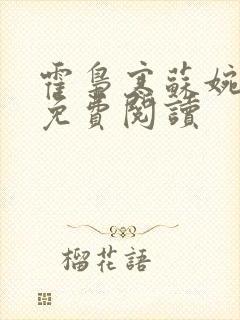 霍梟寒蘇婉
免費閱讀
榴花語